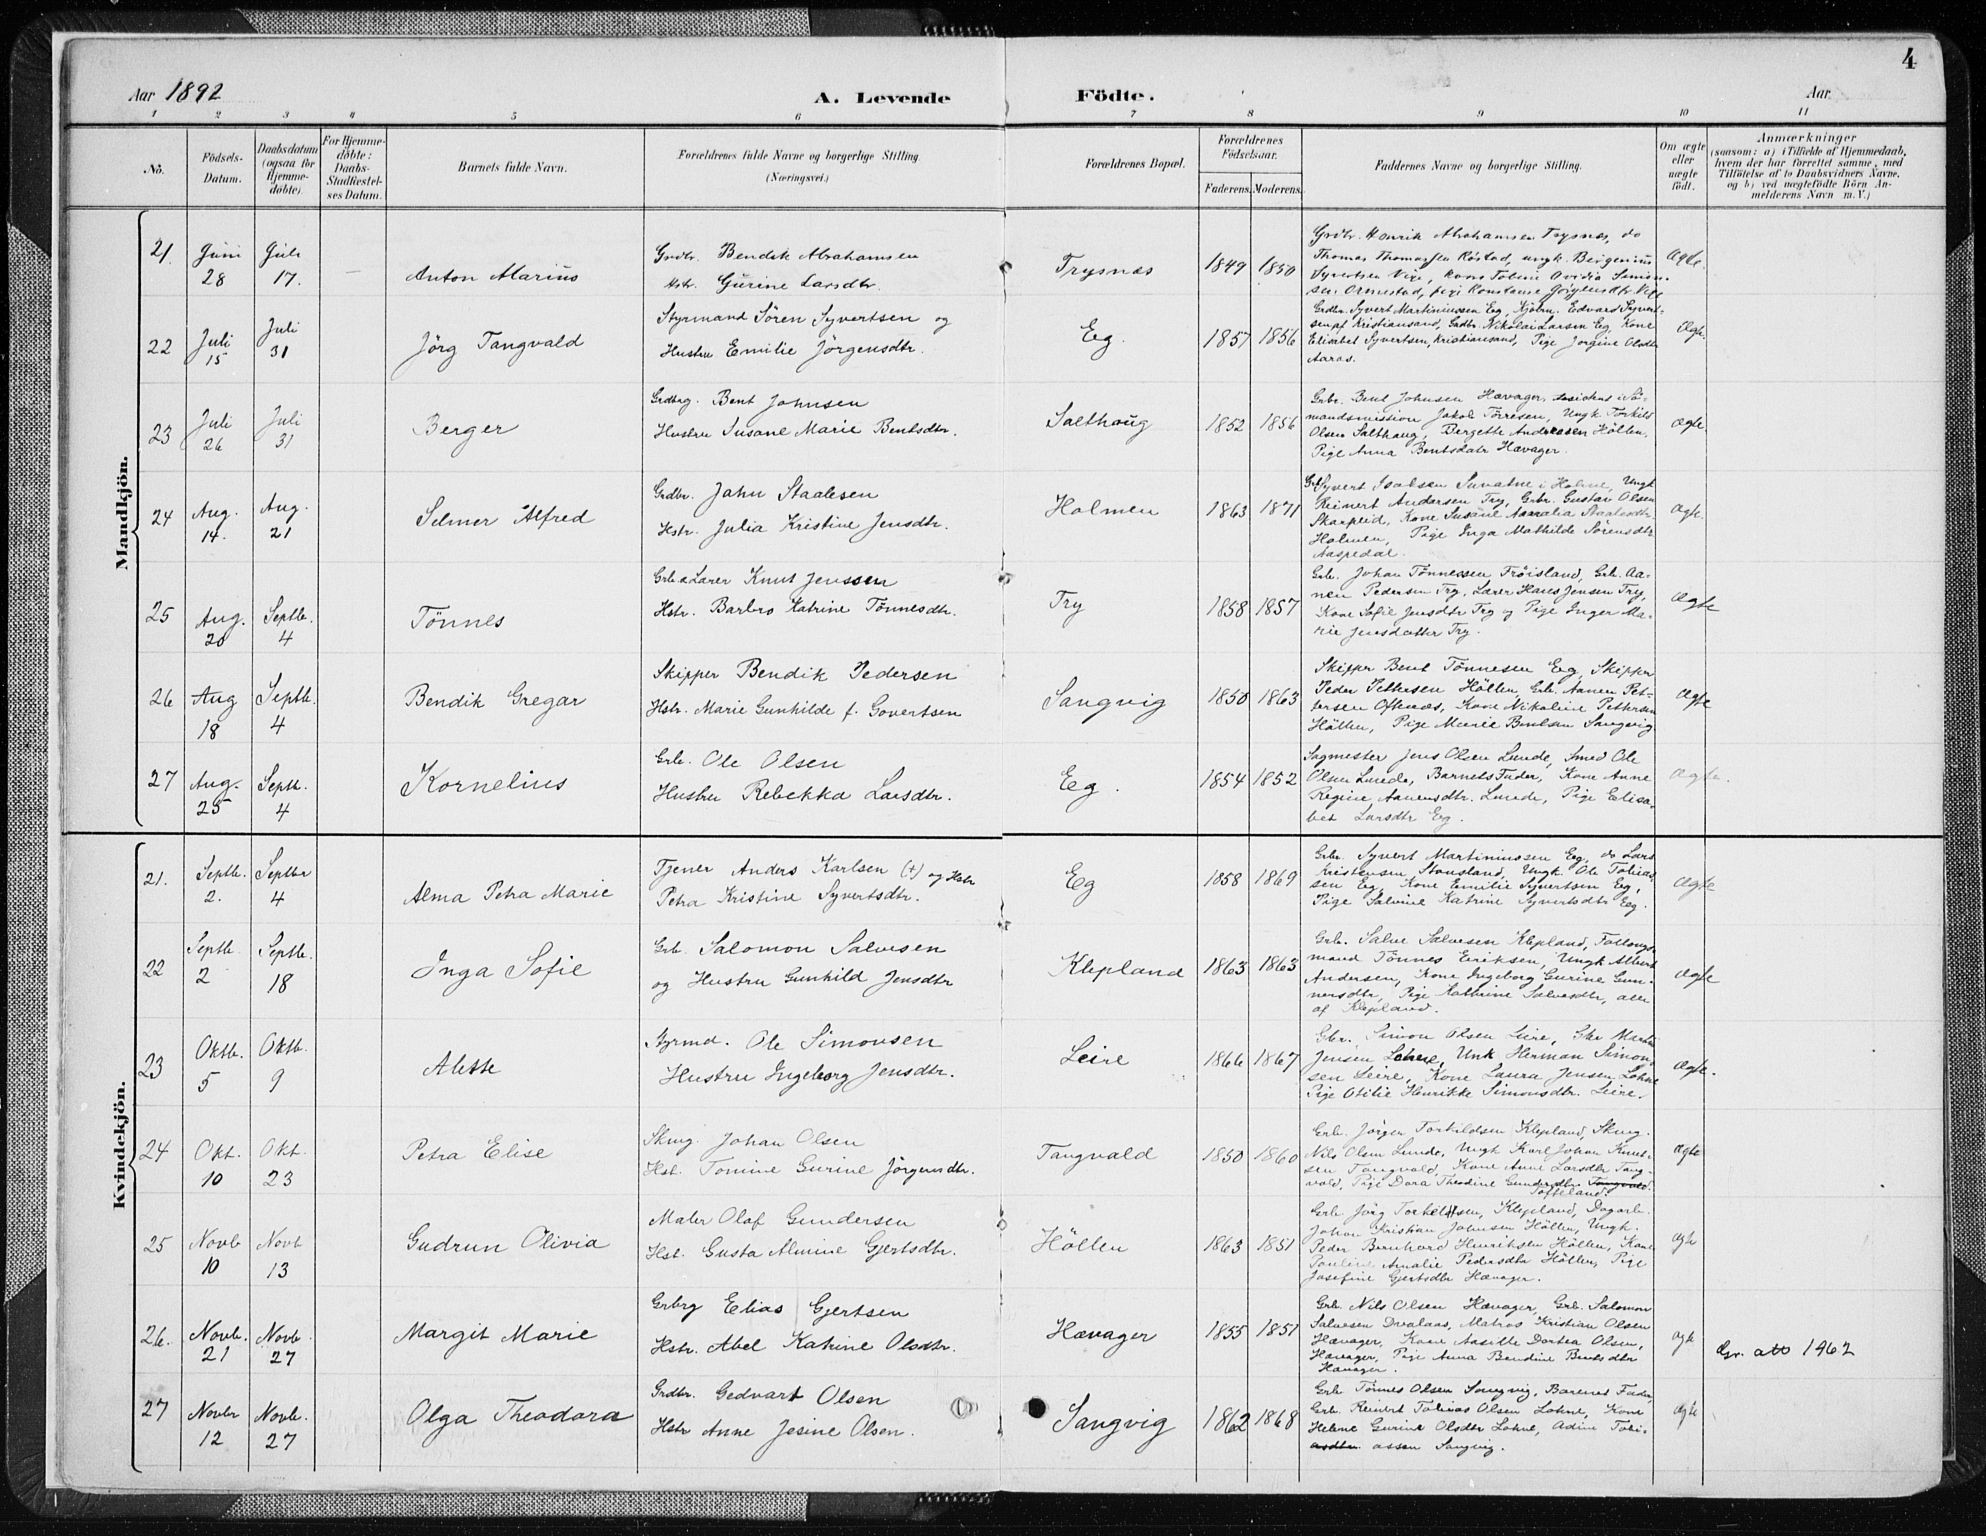 4
Aar 1892
A. Levende Födte.
Aar
1 2 3 4 5 6 7 8 9 10 11
No.
Födsels-
Datum.
Daabsdatum
(ogsaa for
Hjemme-
döbte).
For Hjemme-
döbte:
Daabs-
Stadfæstel-
ses Datum.
Barnets fulde Navn.
Forældrenes fulde Navne og borgerlige Stilling.
(Næringsvei.)
Forældrenes Bopæl.
Forældrenes
Födselsaar.
Faderens. Moderens.
Faddernes Navne og borgerlige Stilling.
Om ægte
eller
uægte
födt.
Anmærkninger
(saasom: a) i Tilfælde af Hjemmedaab,
hvem der har forrettet samme, med
Tilföielse af to Daabsvidners Navne,
og b) ved uægtefödte Börn An-
melderens Navn m. V.)
Mandkjön.
21. Juni 28 Juli 17. — Anton Marius
Grdbr. Bendik Abrahamsen
Hstr. Gurine Larsdtr.
Trysnes 1849 1850
Grdbr. Henrik Abrahamsen Trysnes, do
Thomas Thomassen Röstad, ungk. Bergenius
Syvertsen Vige, kone Tobine Ovidia Simon-
sen Ormestad, pige Konstanse Jörgensdtr. Vige
Ægte.
22 Juli 15 Juli 31 Jörg Tangvald
Styrmand Sören Syvertsen og
Hustru Emilie Jörgensdtr.
Eg. 1857 1856
Grdbr. Syvert Martiniussen Eg, Kjöbm. Edvard Syvert-
sen af Kristiansand, Grdbr. Nikolai Larsen Eg, Kone
Elisabet Syvertsen, Kristiansand, Pige Jorgine Olsdtr
Aaros.
Ægte.
23 Juli 26 Juli 31 Berger
Grdbrg. Bent Johnsen
Hustru Susane Marie Bentsdtr.
Salthaug 1852 1856
Grbr. Bent Johnsen Hævager, Assistent i Sö-
mandsmission Jakob Törresen, Ungk. Torkild
Olsen Salthaug, Bergette Andreasen Höllen,
Pige Anna Bentsdatr Hævager.
Ægte
24 Aug. 14. Aug. 21 Selmer Alfred
Grdbr. John Staalesen
Hstr. Julia Kristine Jensdtr.
Holmen 1863 1871
Grb. Syvert Isaksen Suvatne i Holme, Ungk
Reinert Andersen Try, Grbr. Gustav Olsen
Skarpeid, Kone Susane Amalia Staalesdtr
Holmen, Pige Inga Mathilde Sörensdtr
Aaspedal.
Ægte.
25 Aug. 20 Septb. 4 Tönnes
Grb. & Lærer Knut Jenssen
Hstr. Barbro Katrine Tönnesdtr.
Try 1858 1857
Grb. Johan Tönnessen Tröisland, Grb. Aa-
nen Pedersen Try, Lærer Hans Jensen Try,
Kone Sofie Jensdtr Try og Pige Inger Ma-
rie Jensdatter Try.
Ægte
26 Aug 18 Septb. 4 Bendik Gregar
Skipper Bendik Pedersen
Hstr. Marie Gunhilde f. Govertsen
Sangvig 1850 1863
Skipper Bent Tönnesen Eg, Skipper
Peder Pettersen Höllen, Grb. Aanen Pet-
tersen Oftenæs, Kone Nikoline Pettersen
Höllen, Pige Marie Bentsen Sangvig
Ægte
27 Aug. 25 Septb. 4 Kornelius
Grb. Ole Olsen
Hustru Rebekka Larsdtr.
Eg. 1854 1852
Sagmester Jens Olsen Lunde, Smed Ole
Olsen Lunde, Barnets Fader, Kone Anne
Regine Aanensdtr. Lunde, Pige Elisa-
bet Larsdtr Eg.
Ægte.
Kvindekjön.
21. Septb. 2. Septbr 4 Alma Petra Marie
Tjener Anders Karlsen (†) og Hstr
Petra Kristine Syvertsdtr.
Eg 1858 1869
Grbr. Syvert Martiniussen Eg, do Lars
Kristensen Stousland, Ungk. Ole Tobias-
sen Eg, Kone Emilie Syvertsen Eg,
Pige Salvine Katrine Syvertsdtr Eg.
Ægte
22 Septb. 2 Septb. 18 Inga Sofie
Grb. Salomon Salvesen
og Hustru Gunhild Jensdtr
Klepland 1863 1863
Grb. Salve Salvesen Klepland,
mand Tönnes Eriksen, Ungk Albert
Andersen, Kone Ingeborg Gurine Gun-
nersdtr, Pige Kathrine Salvesdtr, alle
af Klepland.
Ægte
23 Oktb. 5 Oktb. 9 Alette
Styrmd. Ole Simonsen
Hustru Ingeborg Jensdtr.
Leire 1866 1867
Gbr. Simon Olsen Leire, Gbr Martin
Jensen Lohne, Unk Herman Simon-
sen Leire, Kone Laura Jensen Lohne
Pige Otilie Henrikke Simonsdtr. Leire.
Ægte.
24 Okt. 10 Okt. 23 Petra Elise
Skmg. Johan Olsen
Hst. Tomine Gurine Jörgensdtr.
Tangvald 1850 1860
Grb. Jörgen Torkildsen Klepland, Skmg.
Nils Olsen Lunde, Ungk Karl Johan Knut-
sen Tangvald, Kone Anne Larsdtr Tang-
vald, Pige Dora Theodine Gundersdtr Tangvald.
Tofteland.
Ægte
25 Novb 10 Novb 13 Gudrun Olivia
Maler Olaf Gundersen
Hst. Gusta Almine Gjertsdtr.
Höllen 1863 1851
Grb Jörg Torkelsen, Klepland, Dagarb.
Johan Kristian Johnsen Höllen, Ungk.
Peder Bernhard Henriksen Höllen, Kone
Pauline Amalie Pedersdtr Höllen, Pige
Josefine Gjertsdtr Hævager.
Ægte
26. Novb. 21 Novb. 27 Margit Marie
Grbrg Elias Gjertsen
Hstr. Abel Katrine Olsdtr.
Hævager 1855 1851
Grb. Nils Olsen Hævager, Grb. Salomon
Salvesen Dvalaas, Matros Kristian Olsen
Hævager, Kone Aasille Dortea Olsen,
Hævager, Pige Anna Bendine Bentsdtr
Hævager.
Ægte
Gr. att 1962
27 Novbr 12 Novb. 27 Olga Theodora
Grdbr. Gedvart Olsen
Hstr Anne Jesine Olsen.
Sangvig 1862 1868
Grb Tönnes Olsen Sangvig, Barnets Fader,
Grb. Reinert Tobias Olsen Lohne, Kone
Helene Gurine Olsdtr Lohne, Adine Tobi-
asdtr assen Sangvig.
Ægte